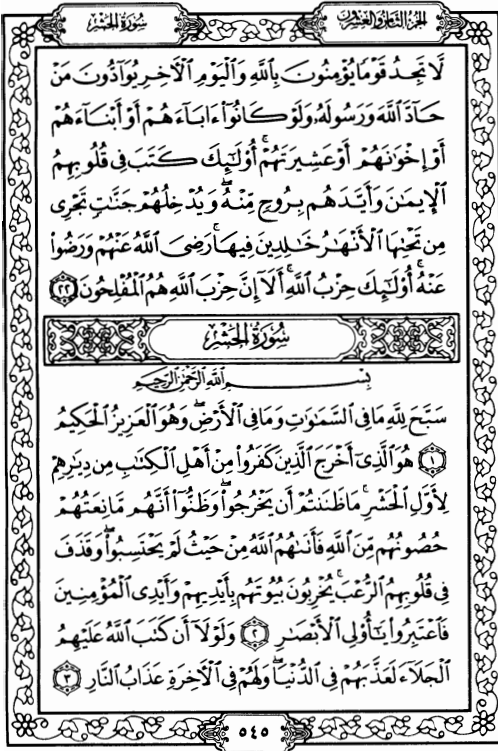 الجزء الثامن والعشرون
سورة الحشر
لَّا تَجِدُ قَوْمًا يُؤْمِنُونَ بِاللَّهِ وَالْيَوْمِ الْآخِرِ يُوَادُّونَ مَنْ
حَادَّ اللَّهَ وَرَسُولَهُ وَلَوْ كَانُوا ءَابَاءَهُمْ أَوْ أَبْنَاءَهُمْ
أَوْ إِخْوَانَهُمْ أَوْ عَشِيرَتَهُمْ ۚ أُولَٰئِكَ كَتَبَ فِي قُلُوبِهِمُ
الْإِيمَانَ وَأَيَّدَهُم بِرُوحٍ مِّنْهُ ۖ وَيُدْخِلُهُمْ جَنَّاتٍ تَجْرِي
مِن تَحْتِهَا الْأَنْهَارُ خَالِدِينَ فِيهَا ۚ رَضِيَ اللَّهُ عَنْهُمْ وَرَضُوا
عَنْهُ ۚ أُولَٰئِكَ حِزْبُ اللَّهِ ۚ أَلَا إِنَّ حِزْبَ اللَّهِ هُمُ الْمُفْلِحُونَ ٢٢
سُورَةُ الْحَشْرِ
بِسْمِ اللَّهِ الرَّحْمَٰنِ الرَّحِيمِ
سَبَّحَ لِلَّهِ مَا فِي السَّمَاوَاتِ وَمَا فِي الْأَرْضِ ۖ وَهُوَ الْعَزِيزُ الْحَكِيمُ
١ هُوَ الَّذِي أَخْرَجَ الَّذِينَ كَفَرُوا مِنْ أَهْلِ الْكِتَابِ مِن دِيَارِهِمْ
لِأَوَّلِ الْحَشْرِ ۚ مَا ظَنَنتُمْ أَن يَخْرُجُوا ۖ وَظَنُّوا أَنَّهُم مَّانِعَتُهُمْ
حُصُونُهُم مِّنَ اللَّهِ فَأَتَاهُمُ اللَّهُ مِنْ حَيْثُ لَمْ يَحْتَسِبُوا ۖ وَقَذَفَ
فِي قُلُوبِهِمُ الرُّعْبَ ۚ يُخْرِبُونَ بُيُوتَهُم بِأَيْدِيهِمْ وَأَيْدِي الْمُؤْمِنِينَ
فَاعْتَبِرُوا يَا أُولِي الْأَبْصَارِ ٢ وَلَوْلَا أَن كَتَبَ اللَّهُ عَلَيْهِمُ
الْجَلَاءَ لَعَذَّبَهُمْ فِي الدُّنْيَا ۖ وَلَهُمْ فِي الْآخِرَةِ عَذَابُ النَّارِ ٣
٥٤٥